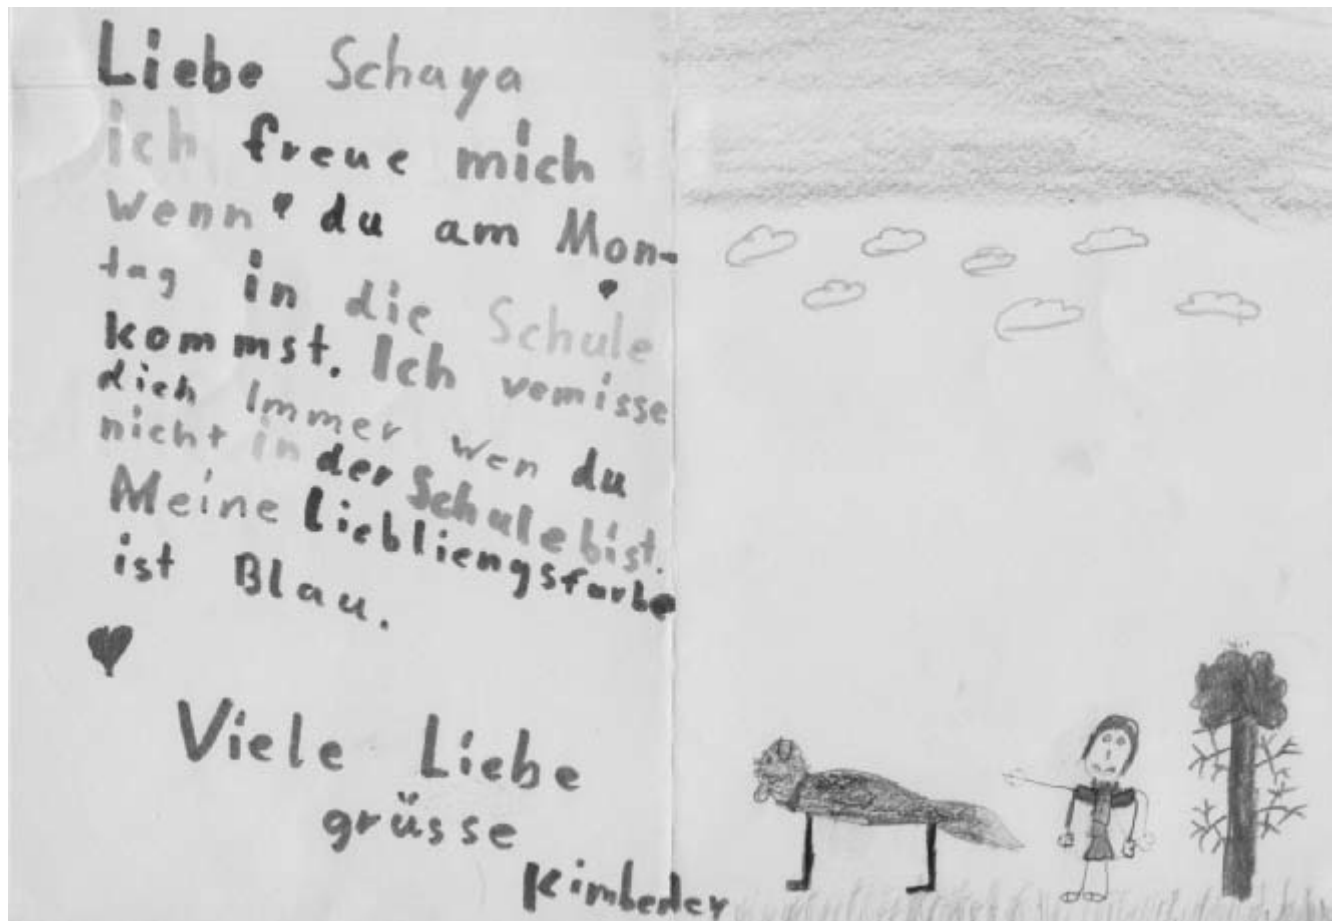 Liebe Schaya
ich freue mich
wenn du am Mon-
tag in die Schule
kommst. Ich vemisse
dich Immer wen du
nicht in der Schule bist.
Meine Liebliengsfarbe
ist Blau.
Viele Liebe
grüsse
Kimberley